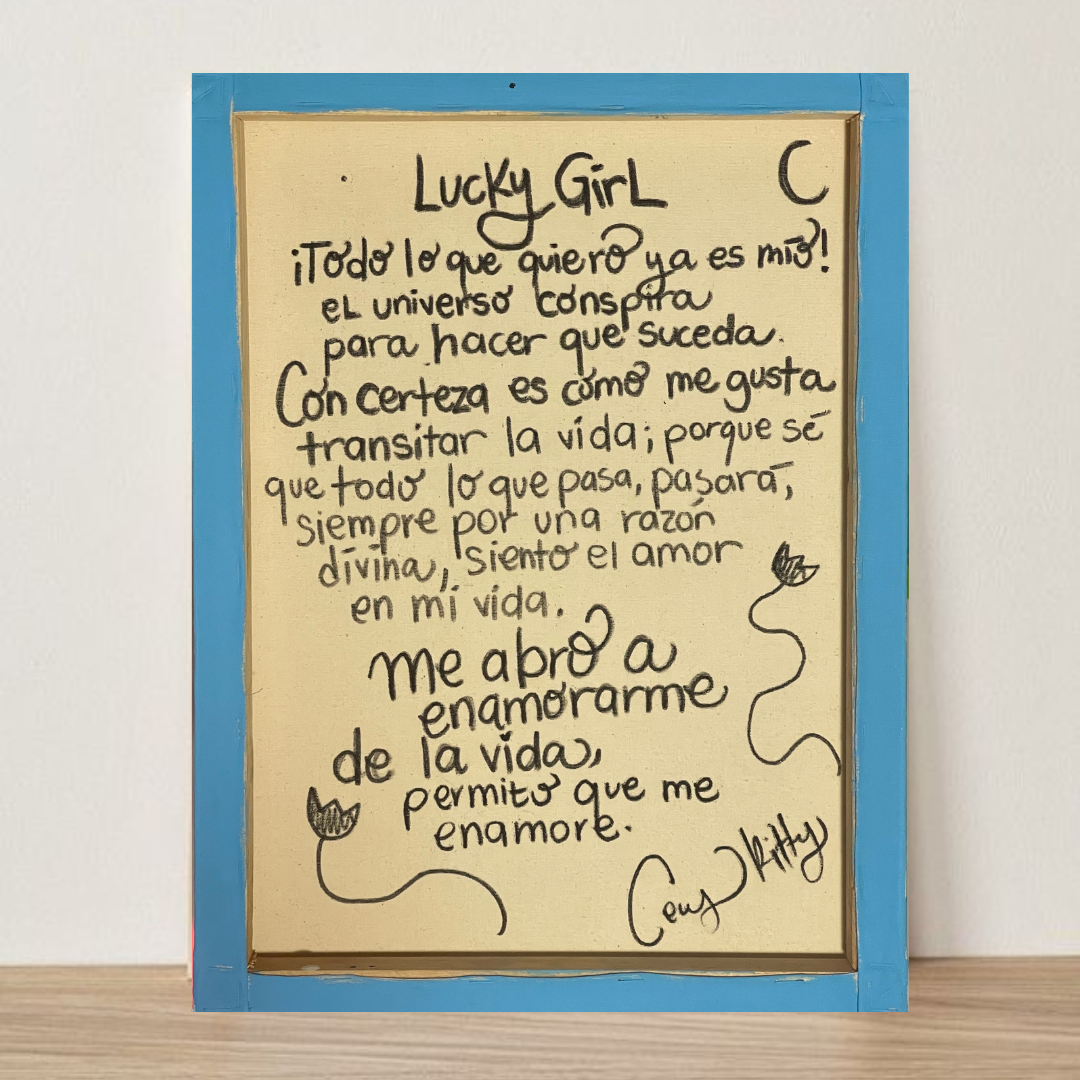 Lucky Girl
C
¡Todo lo que quiero ya es mío!
el universo conspira
para hacer que suceda.
Con certeza es como me gusta
transitar la vida; porque sé
que todo lo que pasa, pasará,
siempre por una razón
divina, siento el amor
en mi vida.
me abro a
enamorarme
de la vida,
permito que me
enamore.
Ceus Kitty